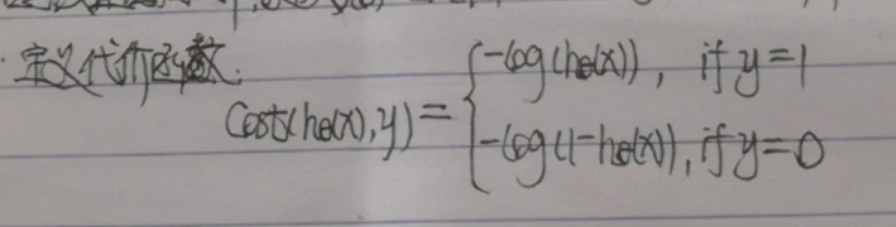 · 定义代价函数:
Cost(hθ(x), y) = { -log(hθ(x)), if y=1
-log(1-hθ(x)), if y=0